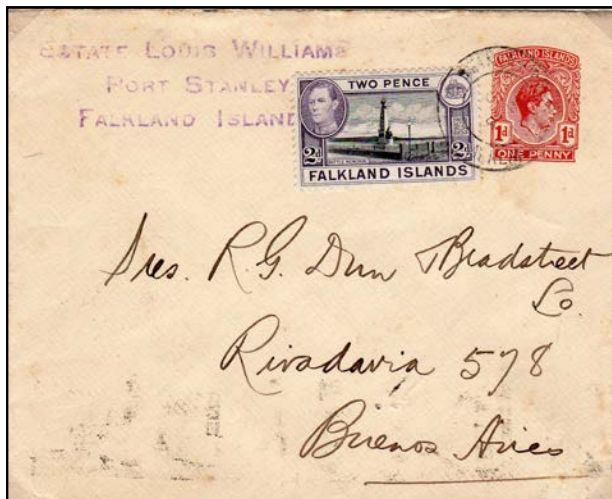 ESTATE LOUIS WILLIAMS
PORT STANLEY
FALKLAND ISLAND
TWO PENCE
2d 2d
BATTLE MEMORIAL
FALKLAND ISLANDS
FALKLAND ISLANDS
1d 1d
ONE PENNY
Sres. R. G. Dun & Bradstreet
Co.
Rivadavia 578
Buenos Aires